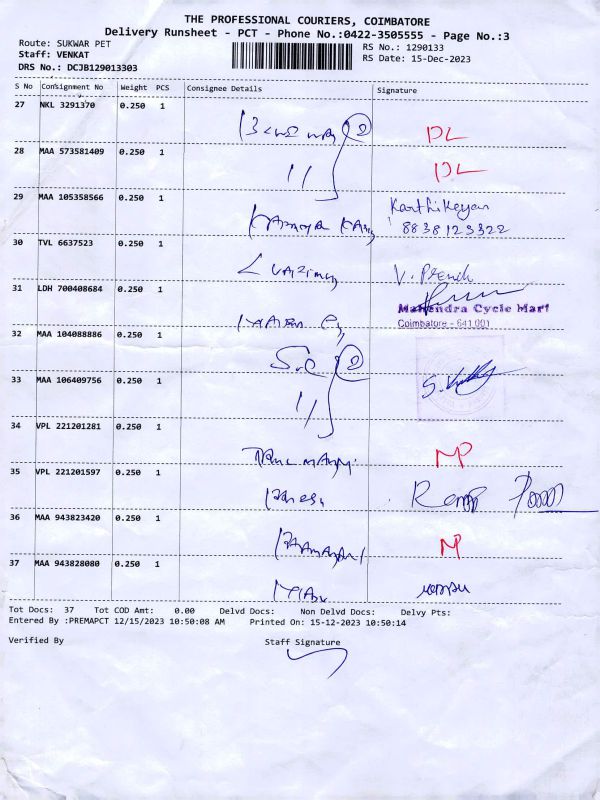 THE PROFESSIONAL COURIERS, COIMBATORE
Delivery Runsheet - PCT - Phone No.:0422-3505555 - Page No.:3
Route: SUKWAR PET
RS No.: 1290133
Staff: VENKAT
RS Date: 15-Dec-2023
DRS No.: DCJB129013303
S No Consignment No Weight PCS Consignee Details Signature
27 NKL 3291370 0.250 1
DL
28 MAA 573581409 0.250 1
11 DL
29 MAA 105358566 0.250 1
Karthikeyan
8838123322
30 TVL 6637523 0.250 1
31 LDH 700408684 0.250 1
Mahendra Cycle Mart
Coimbatore - 641 001
32 MAA 104088886 0.250 1
S.C 2
33 MAA 106409756 0.250 1
11
34 VPL 221201281 0.250 1
NP
35 VPL 221201597 0.250 1
36 MAA 943823420 0.250 1
37 MAA 943828080 0.250 1
Tot Docs: 37 Tot COD Amt: 0.00 Delvd Docs: Non Delvd Docs: Delvy Pts:
Entered By :PREMAPCT 12/15/2023 10:50:08 AM Printed On: 15-12-2023 10:50:14
Verified By Staff Signature